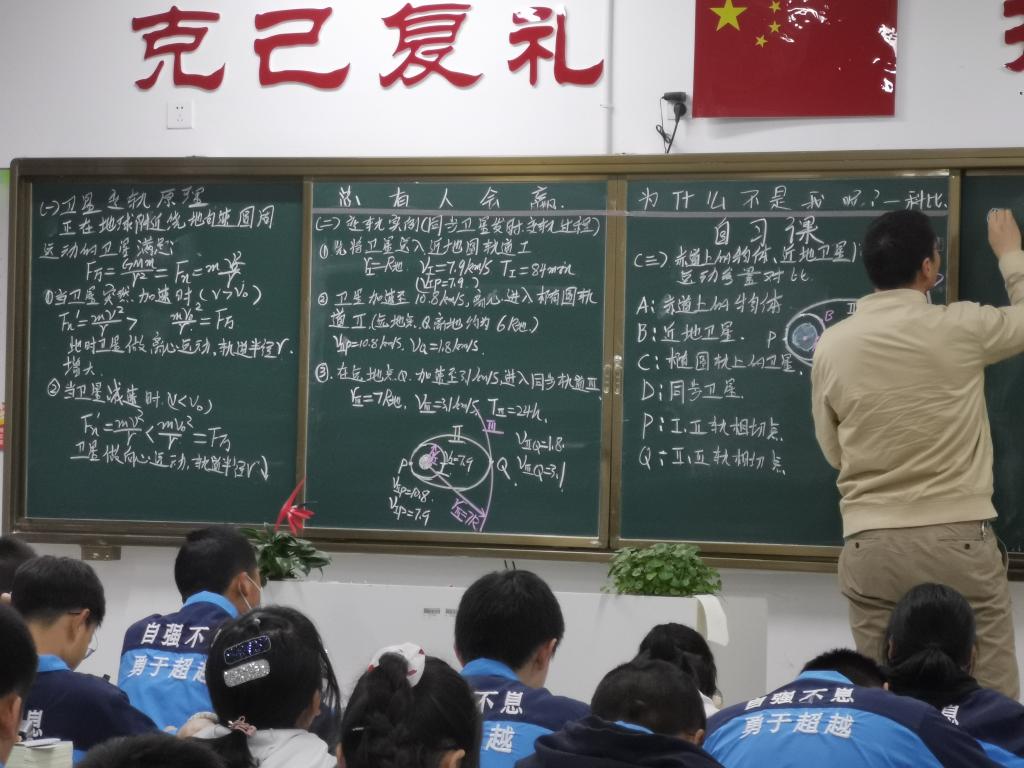 克己复礼
(一)卫星变轨原理
正在地球附近绕地匀速圆周
运动的卫星满足:
F万=GMm/r²=Fn=mv₀²/r
①当卫星突然加速时(v>v₀)
Fn'=mv²/r> mv₀²/r=F万
此时卫星做离心运动,轨道半径r
增大.
②当卫星减速时.(v<v₀)
Fn'=mv²/r<mv₀²/r=F万
卫星做向心运动,轨道半径r↓
总有人会赢.
(二)变轨实例(同步卫星发射、变轨过程)
①先将卫星发入近地圆轨道Ⅰ
rⅠ=R地 vⅠ=7.9km/s TⅠ=84min
(vⅠP=7.9)
②卫星加速至10.8km/s,离心,进入椭圆轨
道Ⅱ(远地点Q离地约为6R地)
vⅡP=10.8km/s.vQ=1.8km/s.
③.在远地点Q.加速至3.1km/s,进入同步轨道Ⅲ
rⅢ=7R地. vⅢ=3.1km/s TⅢ=24h.
Ⅲ
Ⅱ
P
v=7.9
Q
vⅡQ=1.8.
vⅢQ=3.1
vⅡP=10.8
vⅠP=7.9
rⅢ=7R
为什么不是我呢?一科比.
自习课
(三)赤道上的物体、近地卫星
运动参量对比.
A:赤道上的物体
B:近地卫星.
C:椭圆轨上的卫星
D:同步卫星.
P:Ⅰ.Ⅱ轨相切点
Q:Ⅱ.Ⅲ轨相切点
P
B
Ⅲ
自强不
勇于超越
息
不息
越
自强不息
勇于超越
息